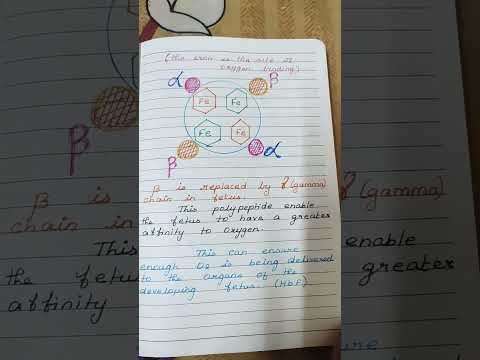 (the iron is the site of
oxygen binding)
α
β
Fe
Fe
Fe
Fe
β
α
β is replaced by γ (gamma)
chain in fetus.
This polypeptide enable
the fetus to have a greater
affinity to oxygen.
This can ensure
enough O₂ is being delivered
to the organs of the
developing fetus. (HbF)